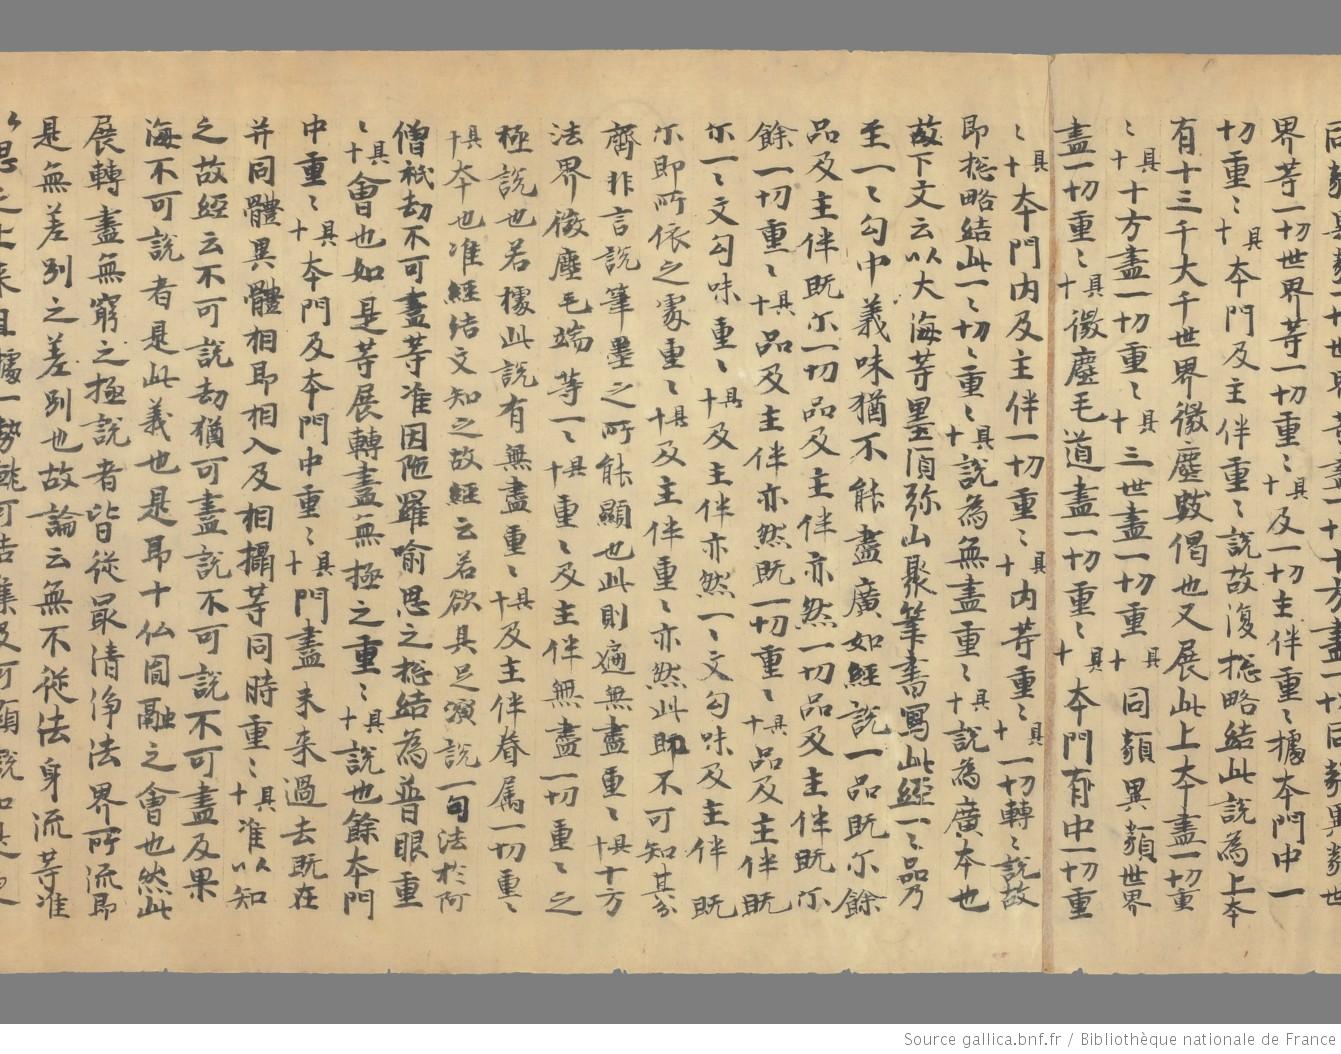 界等一切世界等一切重〻十具及一切主伴重〻據本門中一
切重〻十具本門及主伴重〻說故復揔略結此說為上本
有十三千大千世界微塵數偈也又展此上本盡一切重
〻十具十方盡一切重〻十具三世盡一切重十具同類異類世界
盡一切重〻十具微塵毛道盡一切重〻十具本門有中一切重
〻十具本門內及主伴一切重〻十具內等重〻十具一切轉〻說故
即揔略結此一〻切〻重〻十具說為無盡重〻十具說為廣本也
故下文云以大海等墨須弥山聚筆書寫此經一〻品乃
至一〻勾中義味猶不能盡廣如經說一品既尒餘
品及主伴既尒一切品及主伴亦然一切品及主伴既尒
餘一切重〻十具品及主伴亦然既一切重〻十具品及主伴既
尒一〻文勾味重〻十具及主伴亦然一〻文勾味及主伴既
尒即所依之處重〻十具及主伴重〻亦然此即不可知其分
齊非言說筆墨之所能顯也此則遍無盡重〻十具十方
法界微塵毛端等一〻十具重〻及主伴無盡一切重〻之
極說也若據此說有無盡重〻十具及主伴眷属一切重〻
十具本也准經結文知之故經云若欲具足演說一句法於阿
僧祇劫不可盡等准因陁羅喻思之揔結為普眼重
〻十具會也如是等展轉盡無極之重〻十具說也餘本門
中重〻十具本門及本門中重〻十具門盡未来過去既在
并同體異體相即相入及相攝等同時重〻十具准以知
之故經云不可說劫猶可盡說不可說不可盡及果
海不可說者是此義也是即十仏圎融之會也然此
展轉盡無窮之極說者皆従最清浄法界所流即
是無差別之差別也故論云無不従法身流等准